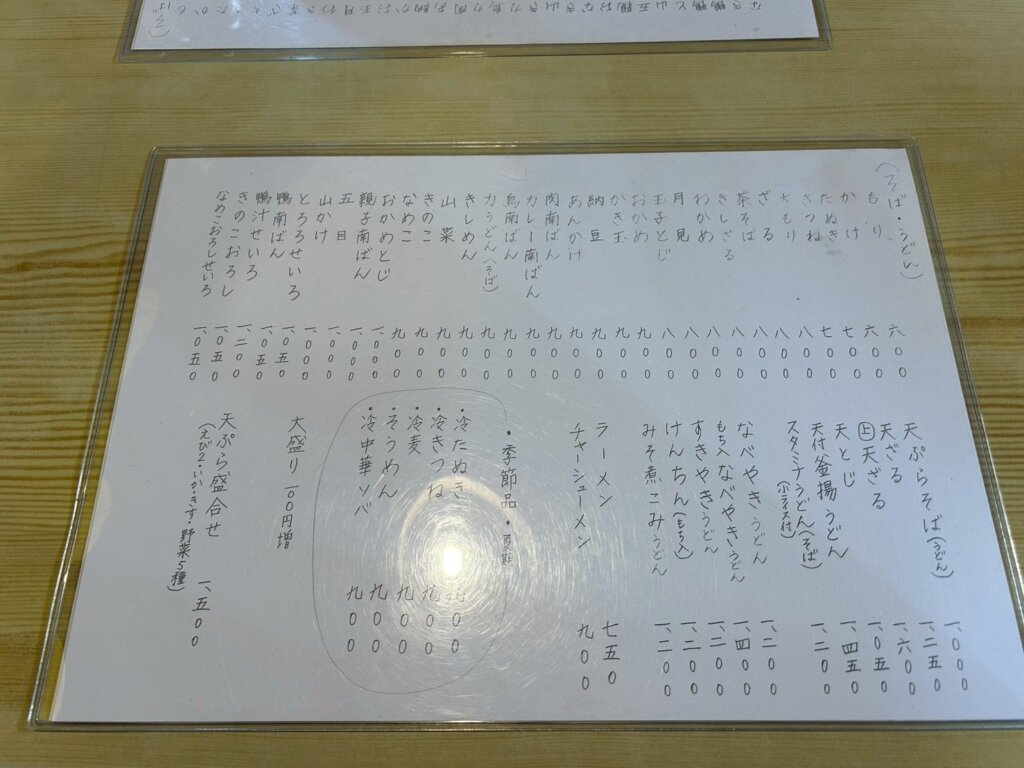 (そば・うどん)
もり 六〇〇
かけ 六〇〇
たぬき 七〇〇
きつね 七〇〇
大もり 八〇〇
ざる 八〇〇
茶そば 八〇〇
きしざる 八〇〇
わかめ 八〇〇
月見 八〇〇
玉子とじ 八〇〇
おかめ 九〇〇
かき玉 九〇〇
納豆 九〇〇
あんかけ 九〇〇
肉南ばん 九〇〇
カレー南ばん 九〇〇
鳥南ばん 九〇〇
力うどん(そば) 九〇〇
きしめん 九〇〇
山菜 九〇〇
きのこ 九〇〇
なめこ 九〇〇
おかめとじ 一、〇〇〇
親子南ばん 一、〇〇〇
五目 一、〇〇〇
山かけ 一、〇〇〇
とろろせいろ 一、〇五〇
鴨南ばん 一、〇五〇
鴨汁せいろ 一、二〇〇
きのこおろし 一、〇五〇
なめこおろしせいろ 一、〇五〇
天ぷらそば(うどん) 一、〇〇〇
天ざる 一、二五〇
㊤天ざる 一、六〇〇
天とじ 一、〇五〇
天付釜揚うどん 一、四五〇
スタミナうどん(そば)(小ライス付) 一、二〇〇
なべやきうどん 一、二〇〇
もち入なべやきうどん 一、四〇〇
すきやきうどん 一、二〇〇
けんちん(もち入) 一、二〇〇
みそ煮こみうどん 一、二〇〇
ラーメン 七五〇
チャーシューメン 九〇〇
・季節品・
・冷たぬき 九〇〇
・冷きつね 九〇〇
・冷麦 九〇〇
・そうめん 九〇〇
・冷中華ソバ 九〇〇
大盛り 一〇〇円増
天ぷら盛合せ 一、五〇〇
(えび2・いか・きす・野菜5種)